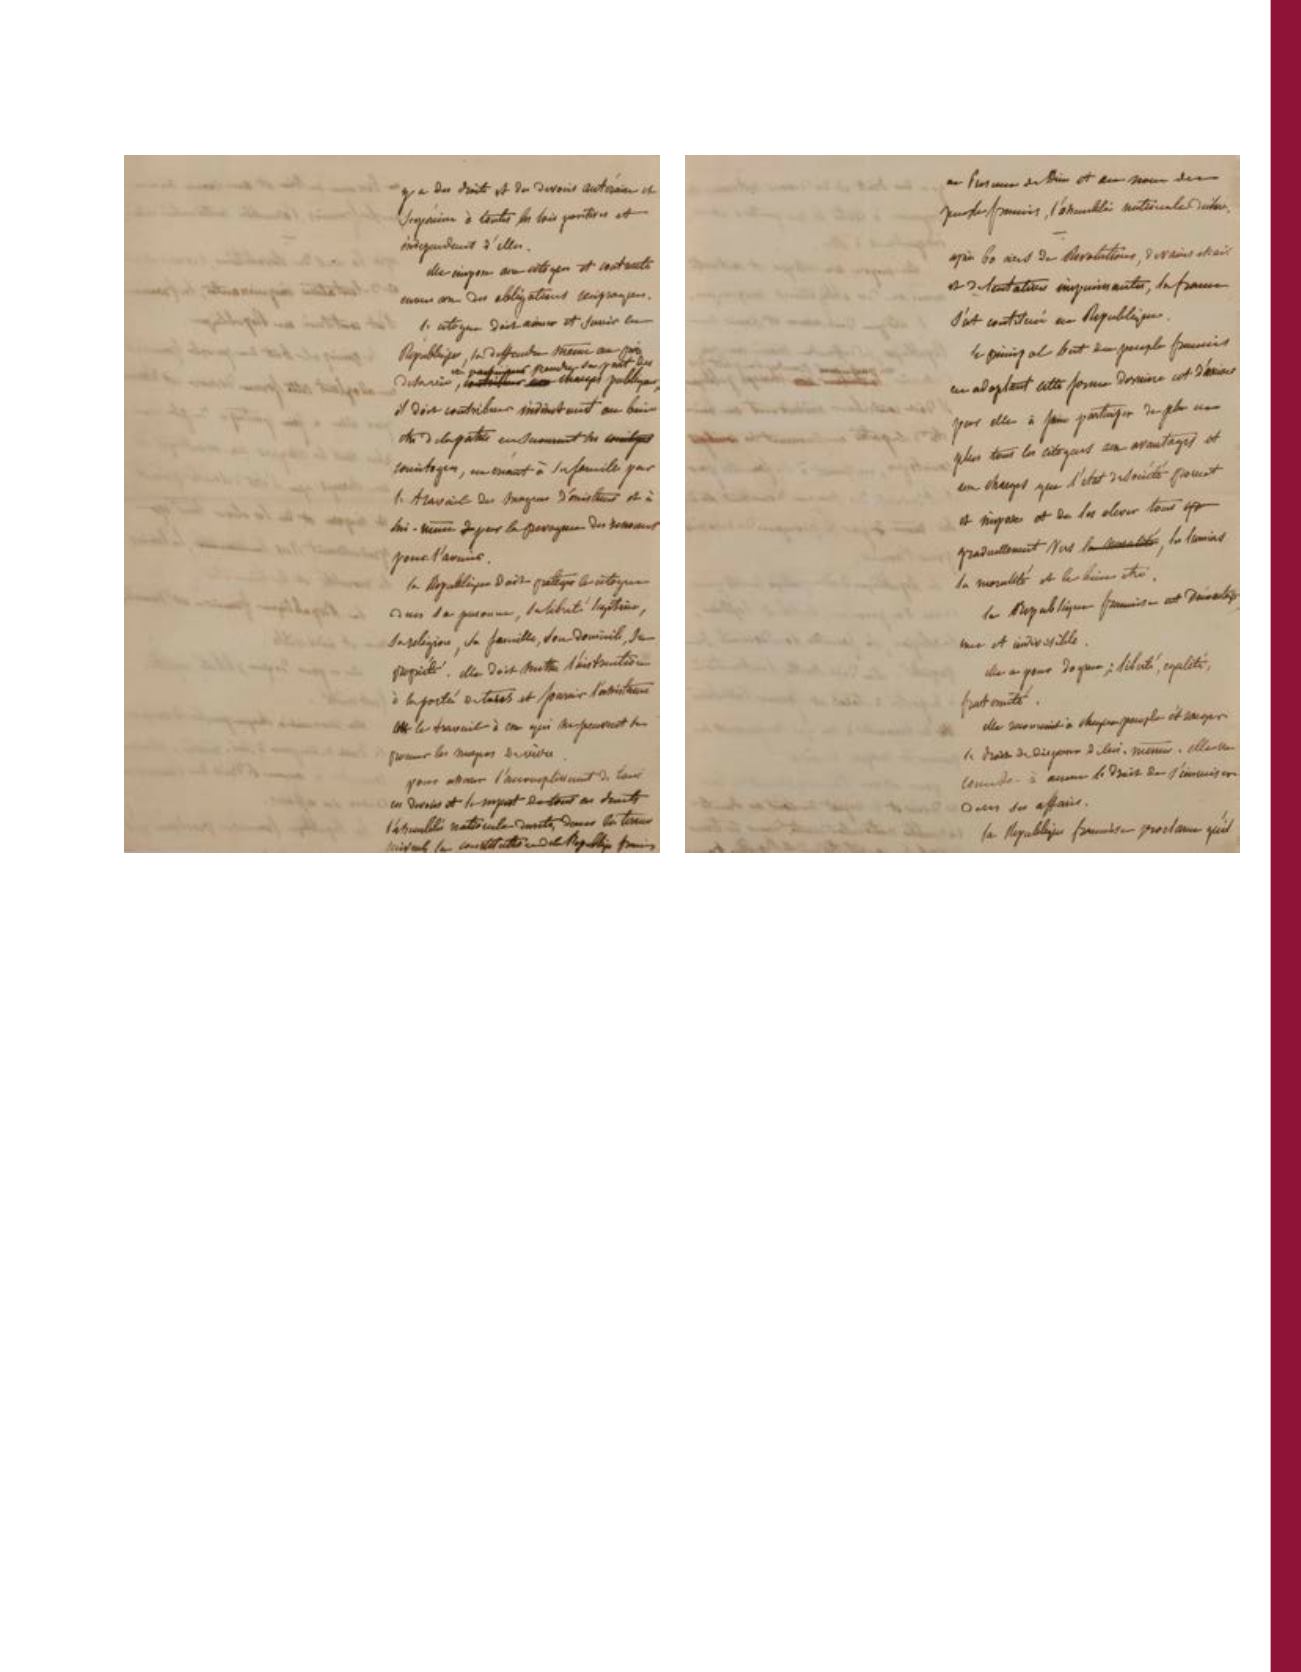 y a des droits et des devoirs antérieurs et
supérieurs à toutes les lois positives et
indépendants d'elles.
elle impose aux citoyens et contracte
envers eux des obligations
le citoyen doit aimer et servir la
République, la deffendre même au prix
prendre sa part des
de sa vie, contribuer aux charges publiques,
il doit contribuer au bien
être de la patrie en secourant ses
concitoyens, en à sa famille par
le travail des moyens d'existence et à
lui-même par la prévoyance des ressources
pour l'avenir.
la République doit protéger le citoyen
dans sa personne, sa liberté légitime,
sa religion, sa famille, son domicile, sa
propriété. elle doit mettre l'instruction
à la porté de tous et fournir l'assistance
le travail à ceux qui ne peuvent se
procurer les moyens de vivre.
pour assurer l'accomplissement de tous
ces devoirs et le respect de tous ces droits
l'assemblée nationale decrète, dans les termes
suivants la constitution de la République française
en Presence de Dieu et au nom du
peuple français, l'assemblée nationale declare.
après 60 ans de Revolutions,
et de tentatives impuissantes, la france
s'est constituée en Republique.
le principal but du peuple français
en adoptant cette forme est d'arriver
par elle à faire partager de plus en
plus tous les citoyens aux avantages et
aux charges que l'état de société permet
et impose et de les elever tous
graduellement vers la moralité, les lumieres
la moralité et le bien etre.
la Republique française est democratique
une et indivisible.
elle a pour dogme ; liberté, egalité,
fraternité.
elle reconnait à chaque peuple étranger
le droit de disposer de lui-meme. elle ne
concède à aucun le droit de s'immiscer
dans ses affaires.
la Republique française proclame qu'il